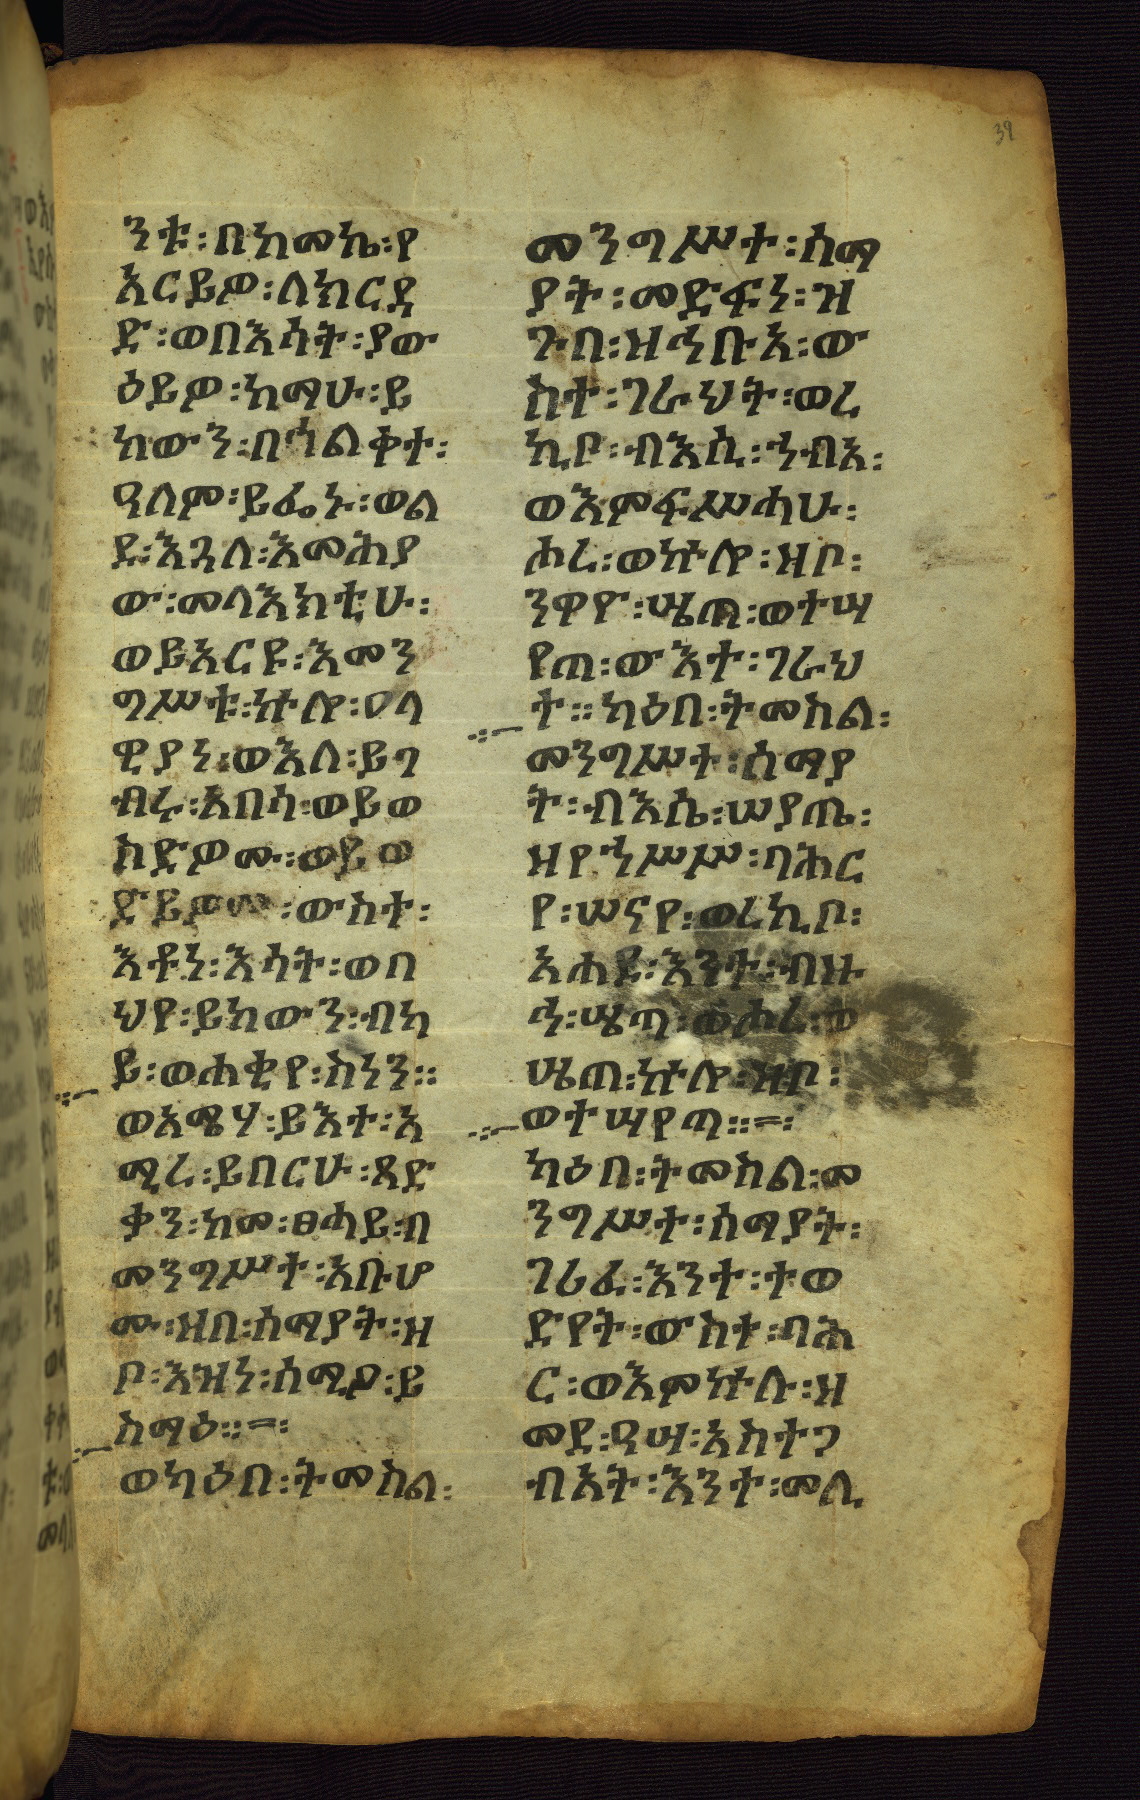 39
ንቱ፡በከመኬ፡የ
አርይዎ፡ለክርዳ
ድ፡ወበእሳት፡ያው
ዕይዎ፡ከማሁ፡ይ
ከውን፡በኅልቀተ፡
ዓለም፡ይፌኑ፡ወል
ደ፡እጓለ፡እመሕያ
ው፡መላእክቲሁ፡
ወይአርዩ፡እመን
ግሥቱ፡ኵሎ፡ዐላ
ዊያነ፡ወእለ፡ይገ
ብሩ፡አበሳ፡ወይወ
ከድዎሙ፡ወይወ
ድይዎሙ፡ውስተ፡
እቶነ፡እሳት፡ወበ
ህየ፡ይከውን፡ብካ
ይ፡ወሐቂየ፡ስነን።
ወአሜሃ፡ይእተ፡አ
ሚረ፡ይበርሁ፡ጻድ
ቃን፡ከመ፡ፀሓይ፡በ
መንግሥተ፡አቡሆ
ሙ፡ዘበ፡ሰማያት፡ዘ
ቦ፡እዝነ፡ሰሚዐ፡ይ
ስማዕ።=፡
ወካዕበ፡ትመስል፡
መንግሥተ፡ሰማ
ያት፡መድፍነ፡ዝ
ጉበ፡ዘኅቡእ፡ው
ስተ፡ገራህት፡ወረ
ኪቦ፡ብእሲ፡ኀብአ፡
ወእምፍሥሓሁ፡
ሖረ፡ወኵሎ፡ዘቦ፡
ንዋዮ፡ሤጠ፡ወተሣ
የጠ፡ውእተ፡ገራህ
ተ።ካዕበ፡ትመስል፡
መንግሥተ፡ሰማያ
ት፡ብእሴ፡ሠያጤ፡
ዘየኀሥሥ፡ባሕር
የ፡ሠናየ፡ወረኪቦ፡
አሐደ፡እንተ፡ብዙ
ኅ፡ሤጣ፡ወሖረ፡ወ
ሤጠ፡ኵሎ፡ዘቦ፡
ወተሣየጣ።=፡
ካዕበ፡ትመስል፡መ
ንግሥተ፡ሰማያት፡
ገሪፈ፡እንተ፡ተወ
ድየት፡ውስተ፡ባሕ
ር፡ወእምኵሉ፡ዘ
መደ፡ዓሣ፡አስተጋ
ብአት፡እንተ፡መሊ